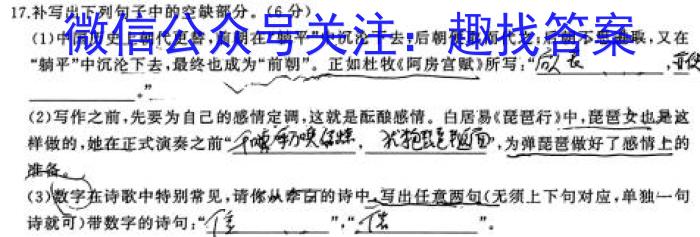 17.补写出下列句子中的空缺部分。(6分)
微信公众号关注：趣找答案
(1)中 历史上朝代更替，前朝在“躺平”中沉沦下去，后朝 取，又在
“躺平”中沉沦下去，最终也成为“前朝”。正如杜牧《阿房宫赋》所写：“
。”
(2)写作之前，先要为自己的感情定调，这就是酝酿感情。白居易《琵琶行》中，琵琶女也是这
样做的，她在正式演奏之前“千呼万唤 ，犹抱琵琶 面”，为弹琵琶做好了感情上的
准备。
(3)数字在诗歌中特别常见，请你从李白的诗中，写出任意两句(无须上下句对应，单独一句
诗就可)带数字的诗句：“ ”，“ ”。